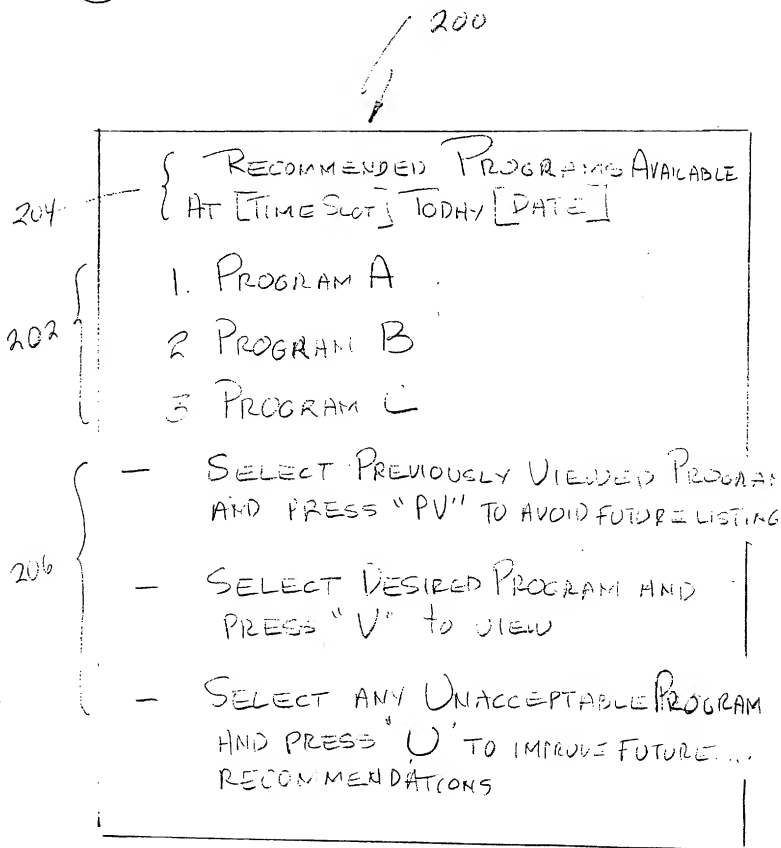 200
204
RECOMMENDED PROGRAMS AVAILABLE
AT [TIME SLOT] TODAY [DATE]
202
1. PROGRAM A
2 PROGRAM B
3 PROGRAM C
206
— SELECT PREVIOUSLY VIEWED PROGRAM
AND PRESS "PV" TO AVOID FUTURE LISTING
— SELECT DESIRED PROGRAM AND
PRESS "V" to VIEW
— SELECT ANY UNACCEPTABLE PROGRAM
AND PRESS "U" TO IMPROVE FUTURE...
RECOMMENDATIONS